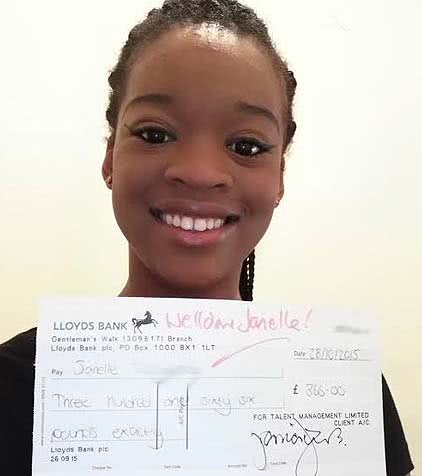 LLOYDS BANK Welldone Janelle!
Gentleman's Walk (309617) Branch
Lloyds Bank plc, PO Box 1000 BX1 1LT
Date 28/10/2015
Pay Janelle
Three hundred and sixty six
£ 366-00
pounds exactly
A/C Payee
FOR TALENT MANAGEMENT LIMITED
CLIENT A/C
Lloyds Bank plc
26 09 15
Cheque No Sort Code Account No